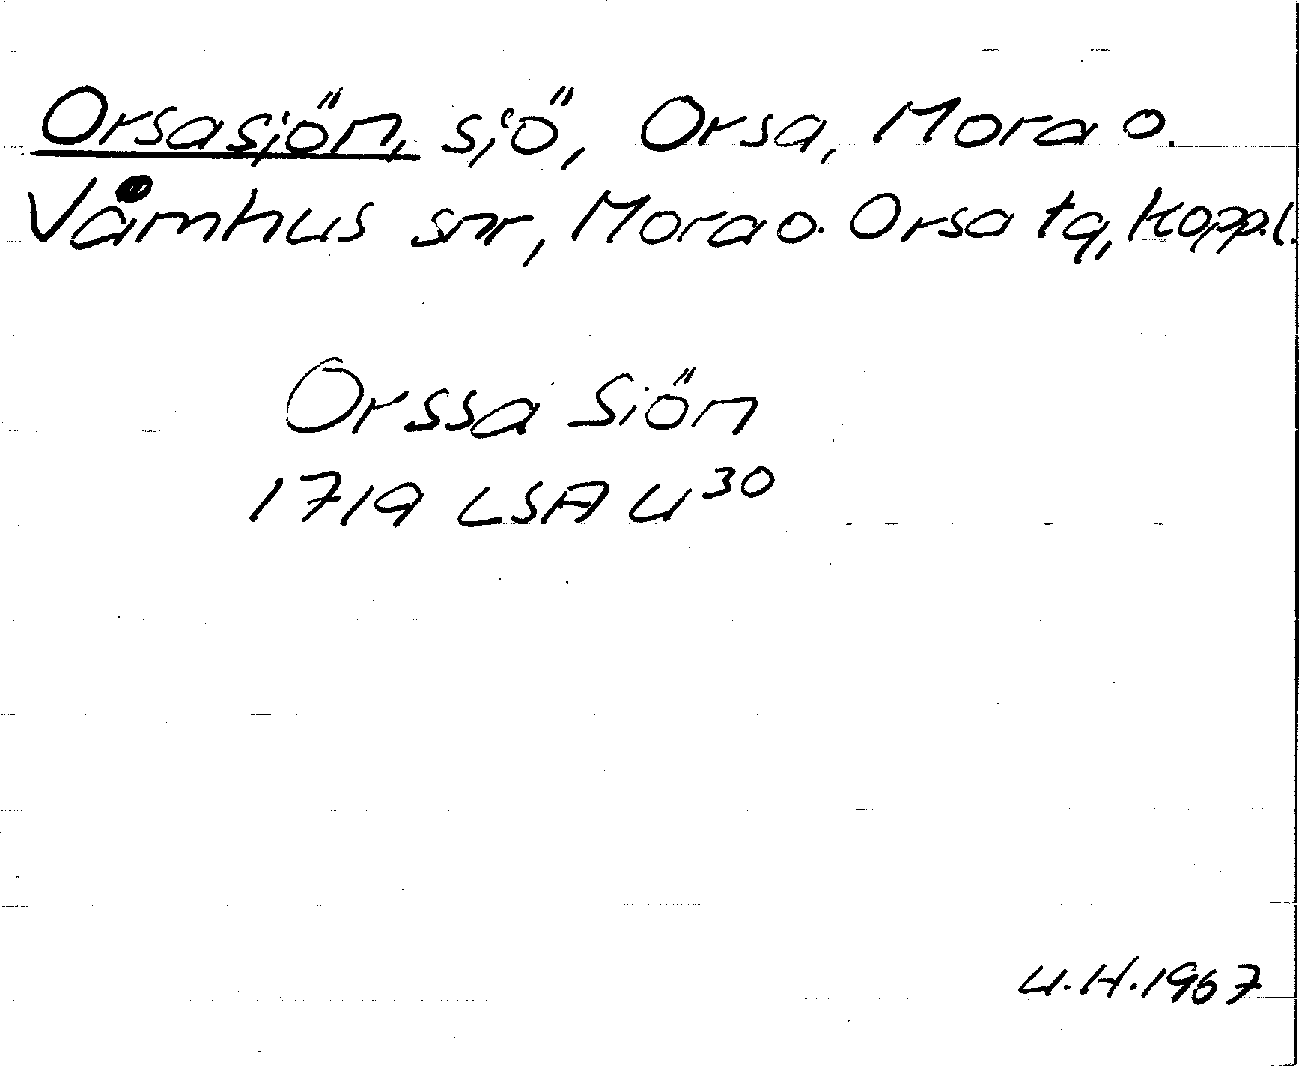 Orsasjön, sjö, Orsa, Mora o.
Våmhus snr, Mora o. Orsa tg, Kopp.l.
Orssa Siön
1719 LSA U30
U.H.1967